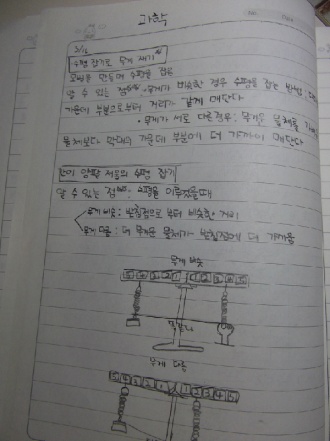 과학
3/16
수평 잡기로 무게 재기
모빌을 만들며 수평을 잡음
알 수 있는 점 무게가 비슷한 경우 수평을 잡는 방법:
가운데 부분으로부터 거리가 같게 매단다
• 무게가 서로 다른 경우: 무거운 물체를
물체보다 가운데 부분에 더 가까이 매단다
양팔 저울의 수평 잡기
알 수 있는 점 수평을 이루었을때
무게 비슷: 받침점으로 부터 비슷한 거리
무게 다름: 더 무거운 물체가 받침점에 더 가까움
무게 비슷
5 4 3 2 1 1 2 3 4 5
무게 다름
5 4 3 2 1 1 2 3 4 5